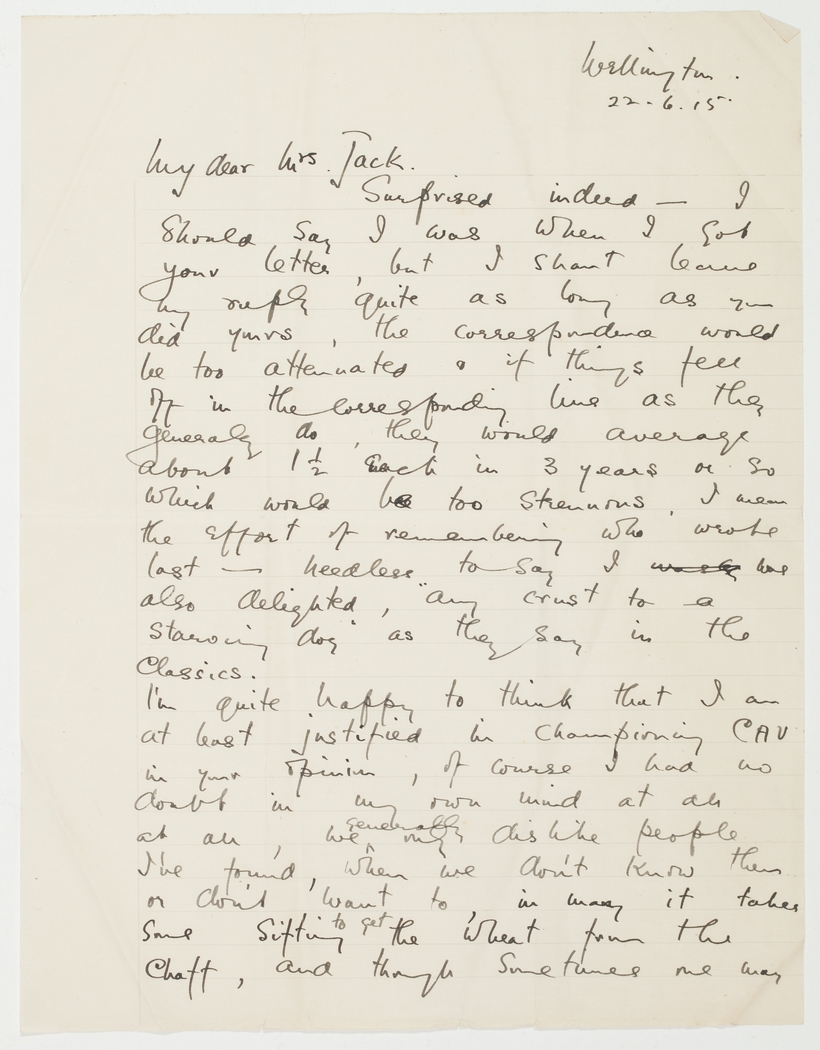 Wellington.
22-6.15.
My dear Mrs. Jack.
Surprised indeed — I
Should Say I was When I Got
your letter, but I shant leave
my reply quite as long as you
did yours, the correspondence would
be too attenuated & if things fell
off in the Corresponding line as they
generally do, they would average
about 1½ Each in 3 years or So
Which would be too Strenuous, I mean
the effort of remembering who wrote
last — needless to Say I was
also delighted, "any crust to a
Starving dog" as they Say in the
Classics.
I'm quite happy to think that I am
at least justified in Championing CAV
in your opinion, of course I had no
doubt in my own mind at all
at all, we generally only dislike people
I've found, when we don't Know them
or don't want to, in many it takes
Some Sifting to get the Wheat from the
Chaff, and though Sometimes one may